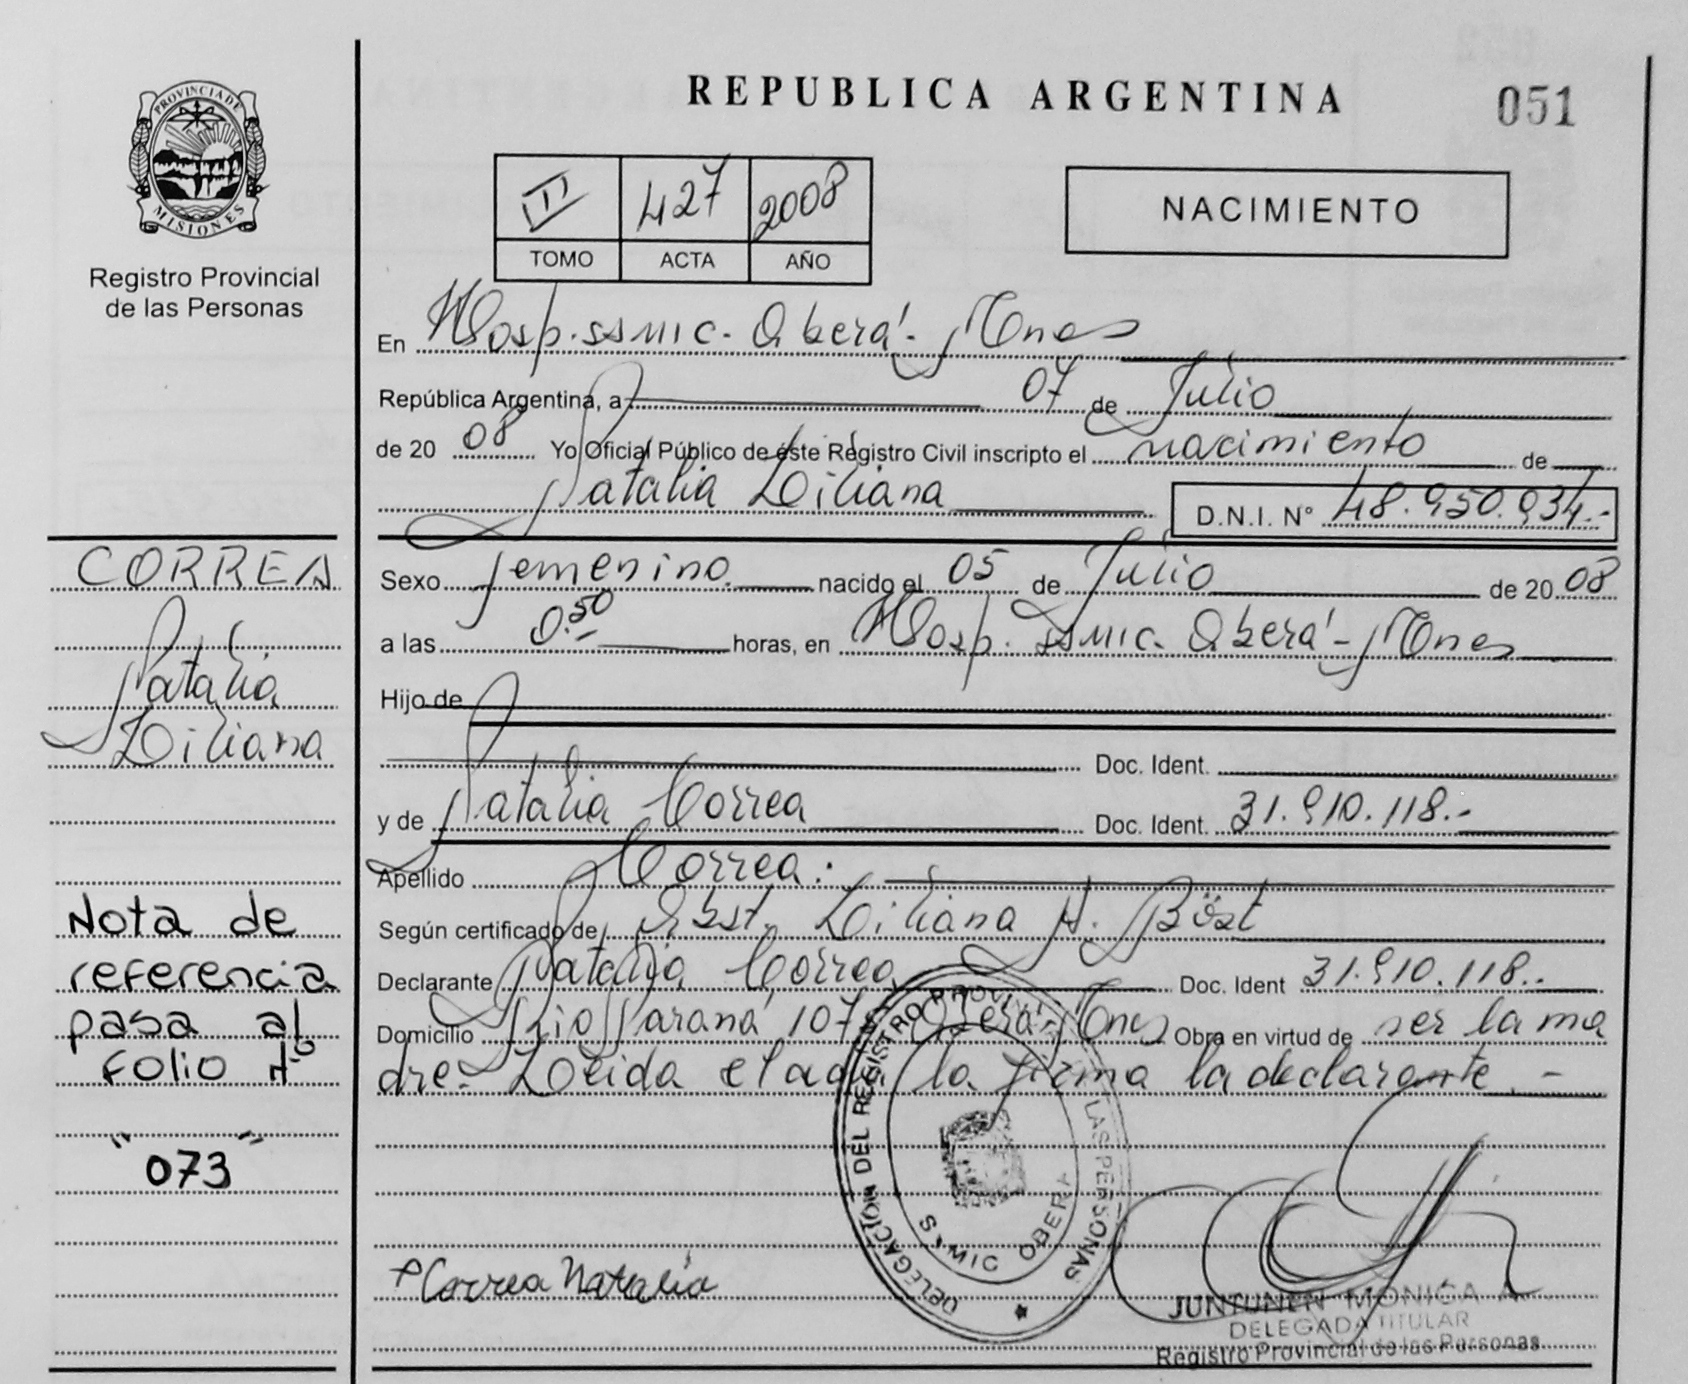 REPUBLICA ARGENTINA
051
PROVINCIA DE
MISIONES
Registro Provincial
de las Personas
II 427 2008
TOMO ACTA AÑO
NACIMIENTO
En Hosp. ssmic. Oberá - Mnes
República Argentina, a 07 de Julio
de 20 08 Yo Oficial Público de éste Registro Civil inscripto el nacimiento de
Natalia Liliana D.N.I. N° 48.950.934.-
Sexo femenino. nacido el 05 de Julio de 20 08
a las 0.50 horas, en Hosp. ssmic. Oberá - Mnes
Hijo de
Doc. Ident.
y de Natalia Correa Doc. Ident. 31.910.118.-
Apellido Correa.
Según certificado de Obst. Liliana N. Böst
Declarante Natalia Correa Doc. Ident 31.910.118.-
Domicilio Rio Paraná 107 Oberá - Mnes Obra en virtud de ser la ma
dre. Leida el acta la firma la declarante. -
CORREA
Natalia
Liliana
Nota de
referencia
pasa al
folio N°
"073"
DELEGACION DEL REGISTRO PROVINCIAL LAS PERSONAS
SSMIC OBERA
Correa Natalia
JUNTUNEN MONICA A.
DELEGADA TITULAR
Registro Provincial de las Personas